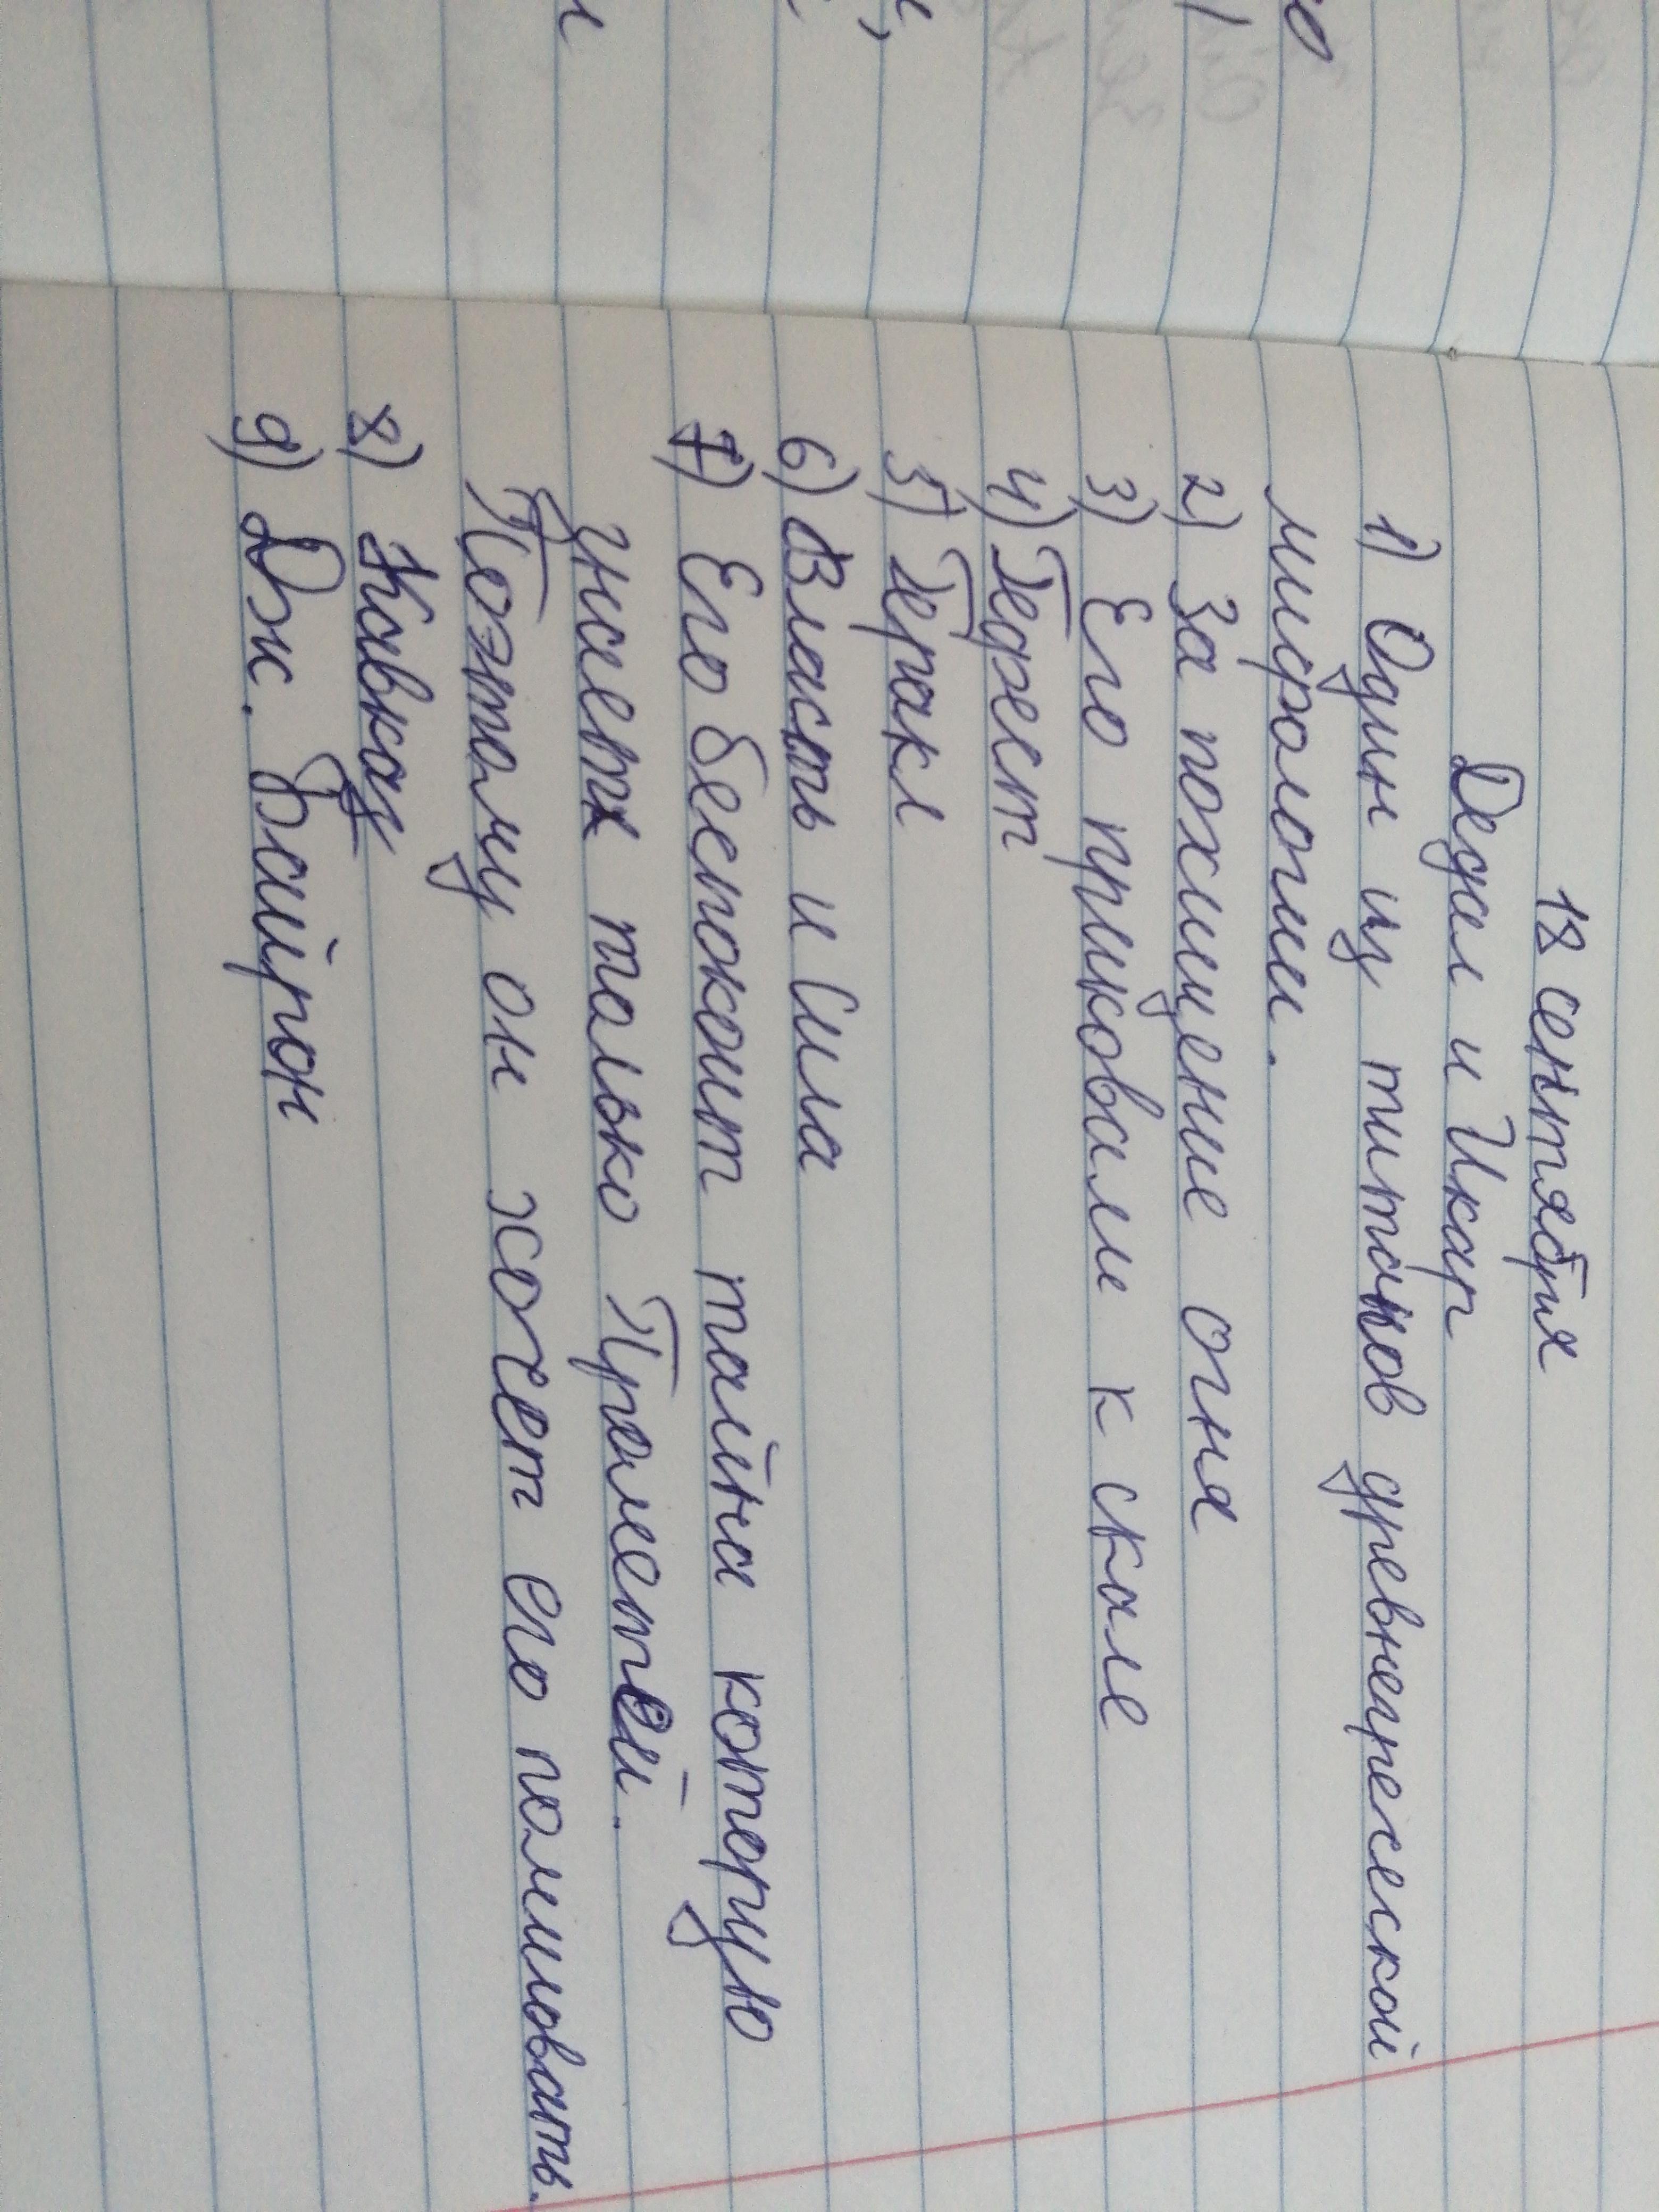 18 сентября
Дедал и Икар
1) Один из титанов древнегреческой
мифологии.
2) За похищение огня
3) Его приковали к скале
4) Гефест
5) Геракл
6) Власть и Сила
7) Его беспокоит тайна которую
знает только Прометей.
Поэтому он хочет его помиловать.
8) Кавказ
9) Дж. Байрон